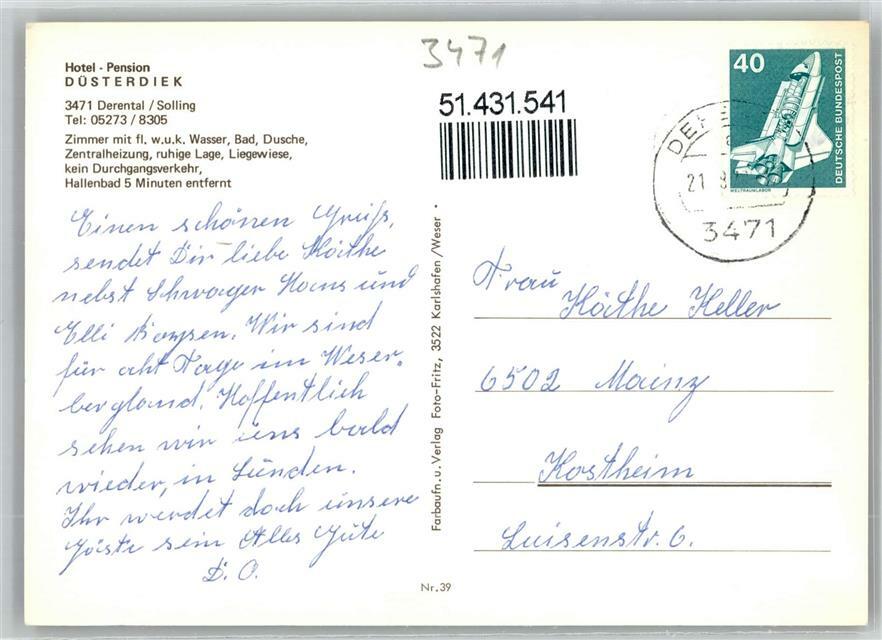 3471
Hotel - Pension
DÜSTERDIEK
3471 Derental / Solling
Tel: 05273 / 8305
Zimmer mit fl. w.u.k. Wasser, Bad, Dusche,
Zentralheizung, ruhige Lage, Liegewiese,
kein Durchgangsverkehr,
Hallenbad 5 Minuten entfernt
51.431.541
40
DEUTSCHE BUNDESPOST
WELTRAUMLABOR
DE
21
3471
Einen schönen Gruß,
sendet Dir liebe Käthe
nebst Schwager Hans und
Elli Wir sind
für acht Tage im Weser-
bergland. Hoffentlich
sehen wir uns bald
wieder, in Lünden.
Ihr werdet doch unsere
Gäste sein Alles Gute
D. O.
Farbaufn. u. Verlag Foto-Fritz, 3522 Karlshafen / Weser
Frau
Käthe Keller
6502 Mainz
Kostheim
Luisenstr. 6.
Nr. 39